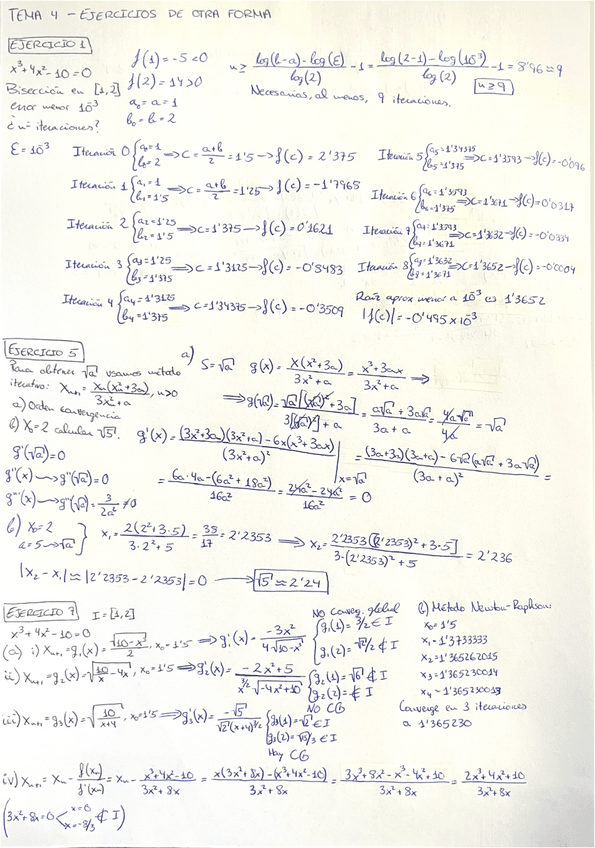 TEMA 4 - EJERCICIOS DE OTRA FORMA
EJERCICIO 1
x³+4x²-10=0
Bisección en [1,2]
error menor 10⁻³
¿nº iteraciones?
f(1)=-5<0
f(2)=14>0
a₀=a=1
b₀=b=2
n ≥ (log(b-a)-log(ε))/log(2) - 1 = (log(2-1)-log(10⁻³))/log(2) - 1 = 8'96 ≈ 9
Necesarias, al menos, 9 iteraciones.
n≥9
ε=10⁻³
Iteración 0 {a₀=1 b₀=2 ⇒ c=(a+b)/2=1'5 → f(c)=2'375
Iteración 1 {a₁=1 b₁=1'5 ⇒ c=(a+b)/2=1'25 → f(c)=-1'7968
Iteración 2 {a₂=1'25 b₂=1'5 ⇒ c=1'375 → f(c)=0'1621
Iteración 3 {a₃=1'25 b₃=1'375 ⇒ c=1'3125 → f(c)=-0'8483
Iteración 4 {a₄=1'3125 b₄=1'375 ⇒ c=1'34375 → f(c)=-0'3509
Iteración 5 {a₅=1'34375 b₅=1'375 ⇒ c=1'3593 → f(c)=-0'096
Iteración 6 {a₆=1'3593 b₆=1'375 ⇒ c=1'3671 → f(c)=0'0317
Iteración 7 {a₇=1'3593 b₇=1'3671 ⇒ c=1'3632 → f(c)=-0'0334
Iteración 8 {a₈=1'3632 b₈=1'3671 ⇒ c=1'3652 → f(c)=-0'0004
Raíz aprox menor a 10⁻³ ⇔ 1'3652
|f(c)|=-0'495×10⁻³
EJERCICIO 5
Para obtener √a usamos método
iterativo: xₙ₊₁ = xₙ(xₙ²+3a)/(3x²+a), n>0
a) Orden convergencia
b) X₀=2 calcular √5.
a) S=√a g(x)= x(x²+3a)/(3x²+a) = (x³+3ax)/(3x²+a) ⇒
⇒ g(√a)= √a[(√a)²+3a]/(3[(√a)²]+a) = (a√a+3a√a)/(3a+a) = 4a√a/4a = √a
g'(x)= ((3x²+3a)(3x²+a)-6x(x³+3ax))/(3x²+a)² |x=√a = ((3a+3a)(3a+a)-6√a(a√a+3a√a))/(3a+a)² =
= (6a·4a-(6a²+18a²))/16a² = (24a²-24a²)/16a² = 0
g'(√a)=0
g''(x) → g''(√a)=0
g'''(x) → g'''(√a)= 3/2a² ≠0
b) X₀=2
a=5→√a
x₁= 2(2²+3·5)/(3·2²+5) = 38/17 = 2'2353 ⇒ x₂= 2'2353[(2'2353)²+3·5]/(3·(2'2353)²+5) = 2'236
|x₂-x₁| ≈ |2'2353-2'2353| = 0 → √5≈2'24
EJERCICIO 7 I=[1,2]
x³+4x²-10=0
(a) i) xₙ₊₁=g₁(x)= √(10-x³)/2, x₀=1'5 ⇒ g₁'(x)= -3x²/(4√(10-x³))
No Converg. global
{g₁(1)=3/2 ∈ I
g₁(2)=√2/2 ∉ I
ii) xₙ₊₁=g₂(x)=√(10/x-4x), x₀=1'5 ⇒ g₂'(x)= (-2x²+5)/(x^(3/2)√(-4x²+10))
{g₂(1)=√6 ∉ I
g₂(2)=∉ I
NO CG
iii) xₙ₊₁=g₃(x)=√(10/(x+4)), x₀=1'5 ⇒ g₃'(x)= -√5/(√2(x+4)^(3/2))
{g₃(1)=√2 ∈ I
g₃(2)=√15/3 ∈ I
Hay CG
iv) xₙ₊₁=xₙ-f(xₙ)/f'(xₙ) = xₙ-(x³+4x²-10)/(3x²+8x) = (x(3x²+8x)-(x³+4x²-10))/(3x²+8x) = (3x³+8x²-x³-4x²+10)/(3x²+8x) = (2x³+4x²+10)/(3x²+8x)
(3x²+8x=0 < x=0 x=-8/3 ∉ I)
b) Método Newton-Raphson:
x₀=1'5
x₁=1'3733333
x₂=1'365262015
x₃=1'365230014
x₄=1'365230013
Converge en 3 iteraciones
a 1'365230